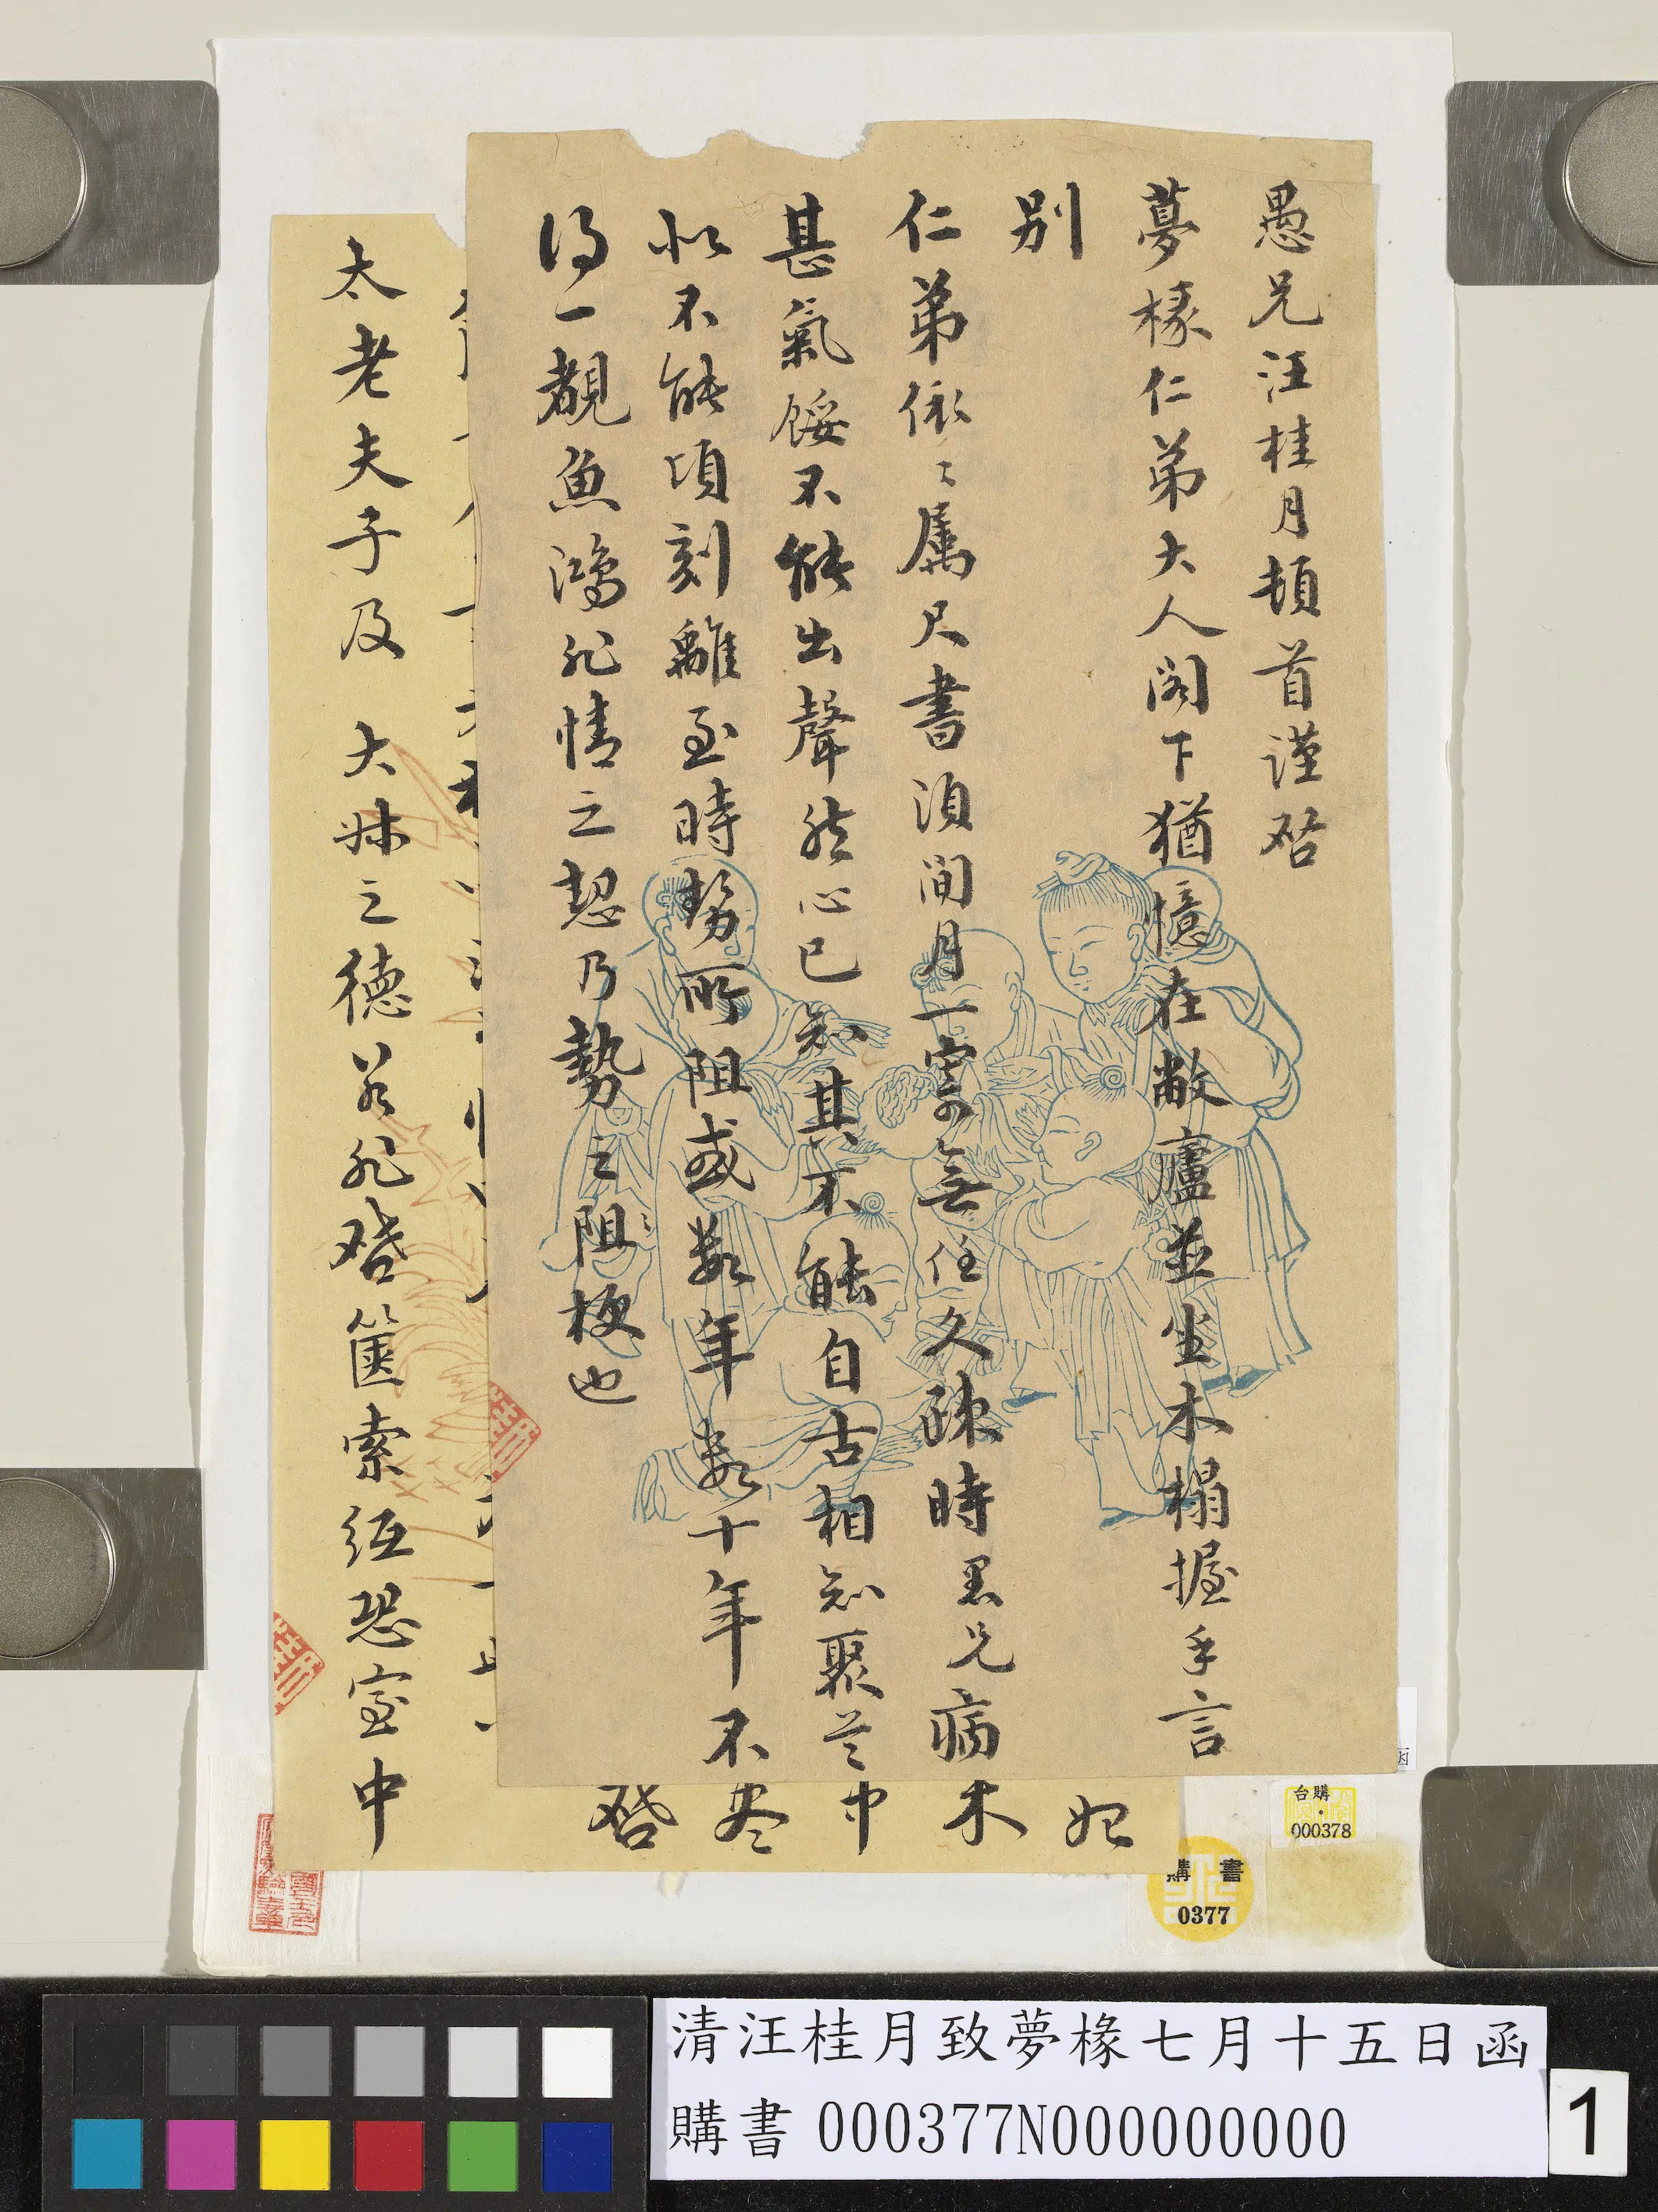 愚兄汪桂月頓首謹啓
夢椽仁弟大人閣下猶憶在敝廬並坐木榻握手言
別
仁弟依〻属尺書須間月一寄無任久疎時愚兄病
甚氣餒不能出聲然心已知其不能自古相知聚首
似不能頃刻離至時勢所阻或数年数十年不
得一覩魚鴻非情之恝乃勢之阻梗也
太老夫子及 大妹之德若非啓篋索紙恐室中
妃
木
中
尽
啓
台購
000378
購書
0377
清汪桂月致夢椽七月十五日函
購書 000377N000000000
1